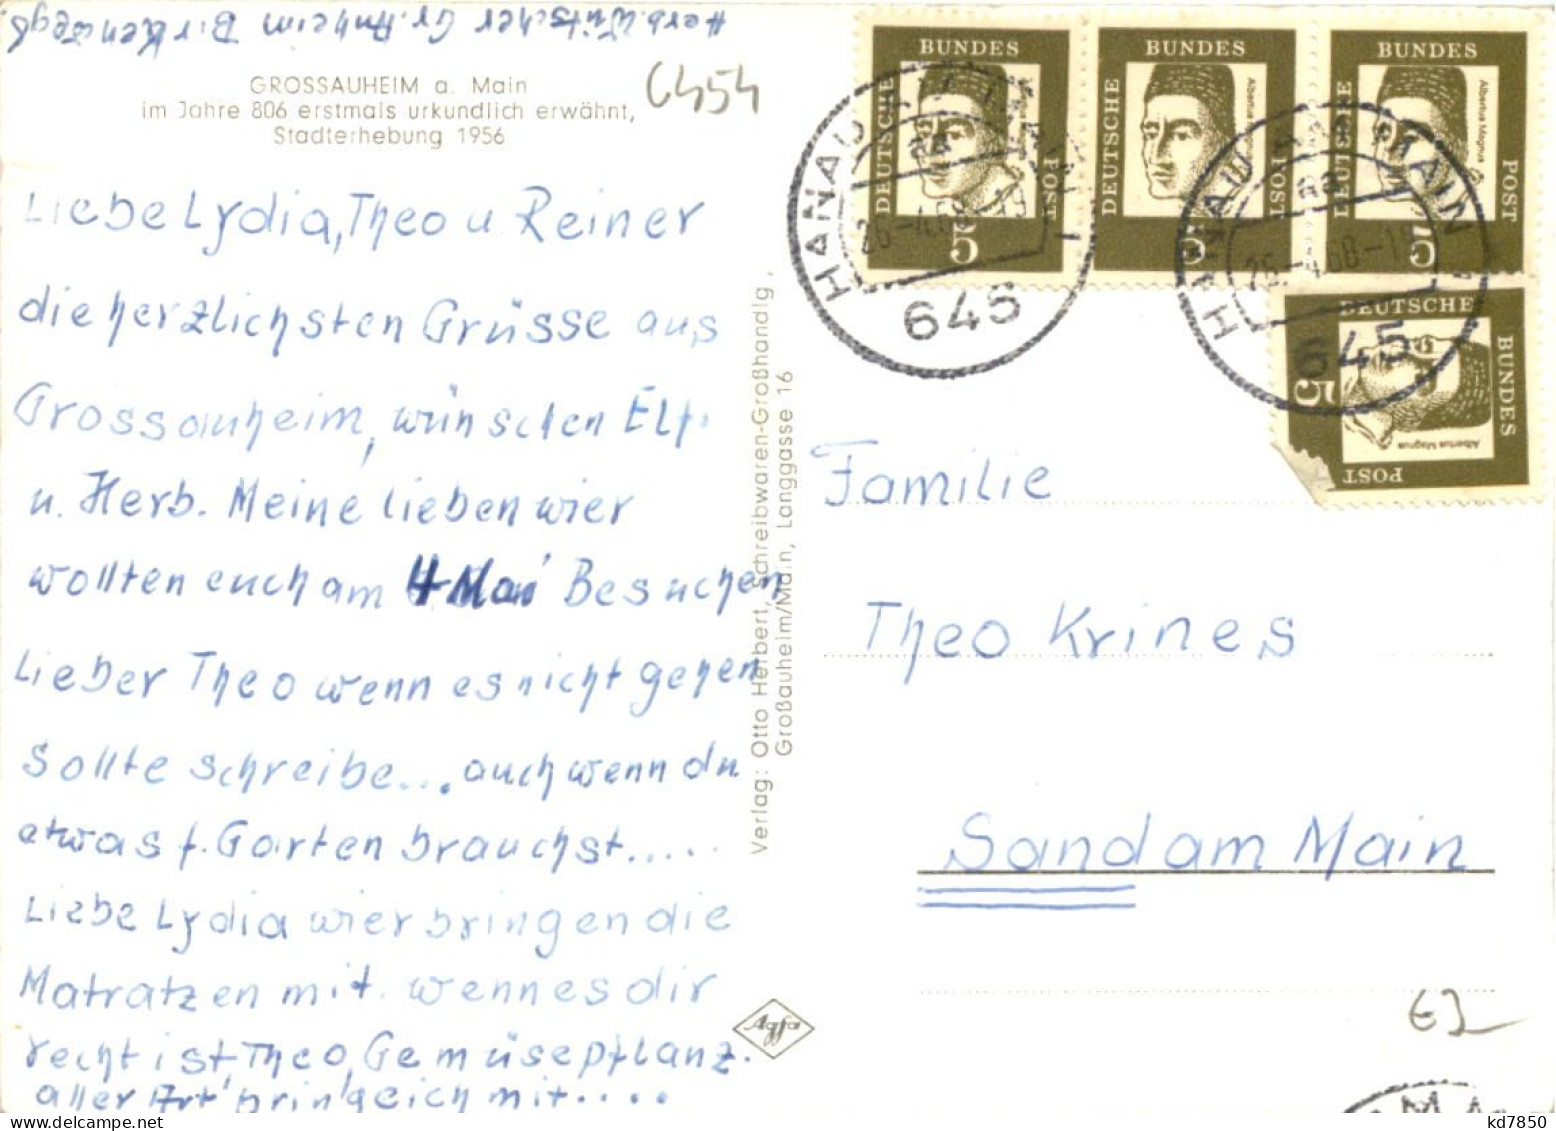 Herb. Wütscher Gr. Auheim Birkenweg 6
GROSSAUHEIM a. Main
im Jahre 806 erstmals urkundlich erwähnt,
Stadterhebung 1956
6454
Liebe Lydia, Theo u. Reiner
die herzlichsten Grüsse aus
Grossauheim, wünschen Elf.
u. Herb. Meine lieben wier
wollten euch am 4 Mai Besuchen
Lieber Theo wenn es nicht gehen
Sollte schreibe... auch wenn du
etwas f. Garten brauchst.....
Liebe Lydia wier bringen die
Matratzen mit. wenn es dir
recht ist, Theo, Gemüsepflanz.
aller Art bring eich mit....
Verlag: Otto Herbert, Schreibwaren-Großhandlg.
Großauheim/Main, Langgasse 16
Agfa
BUNDES
DEUTSCHE
POST
5
BUNDES
DEUTSCHE
POST
Albertus Magnus
5
BUNDES
DEUTSCHE
POST
Albertus Magnus
5
DEUTSCHE
BUNDES
POST
Albertus Magnus
5
HANAU
aa
26.-4.68
645
HANAU MAIN 1
aa
26.-4.68-18
645
Familie
Theo Krines
Sand am Main
kd7850